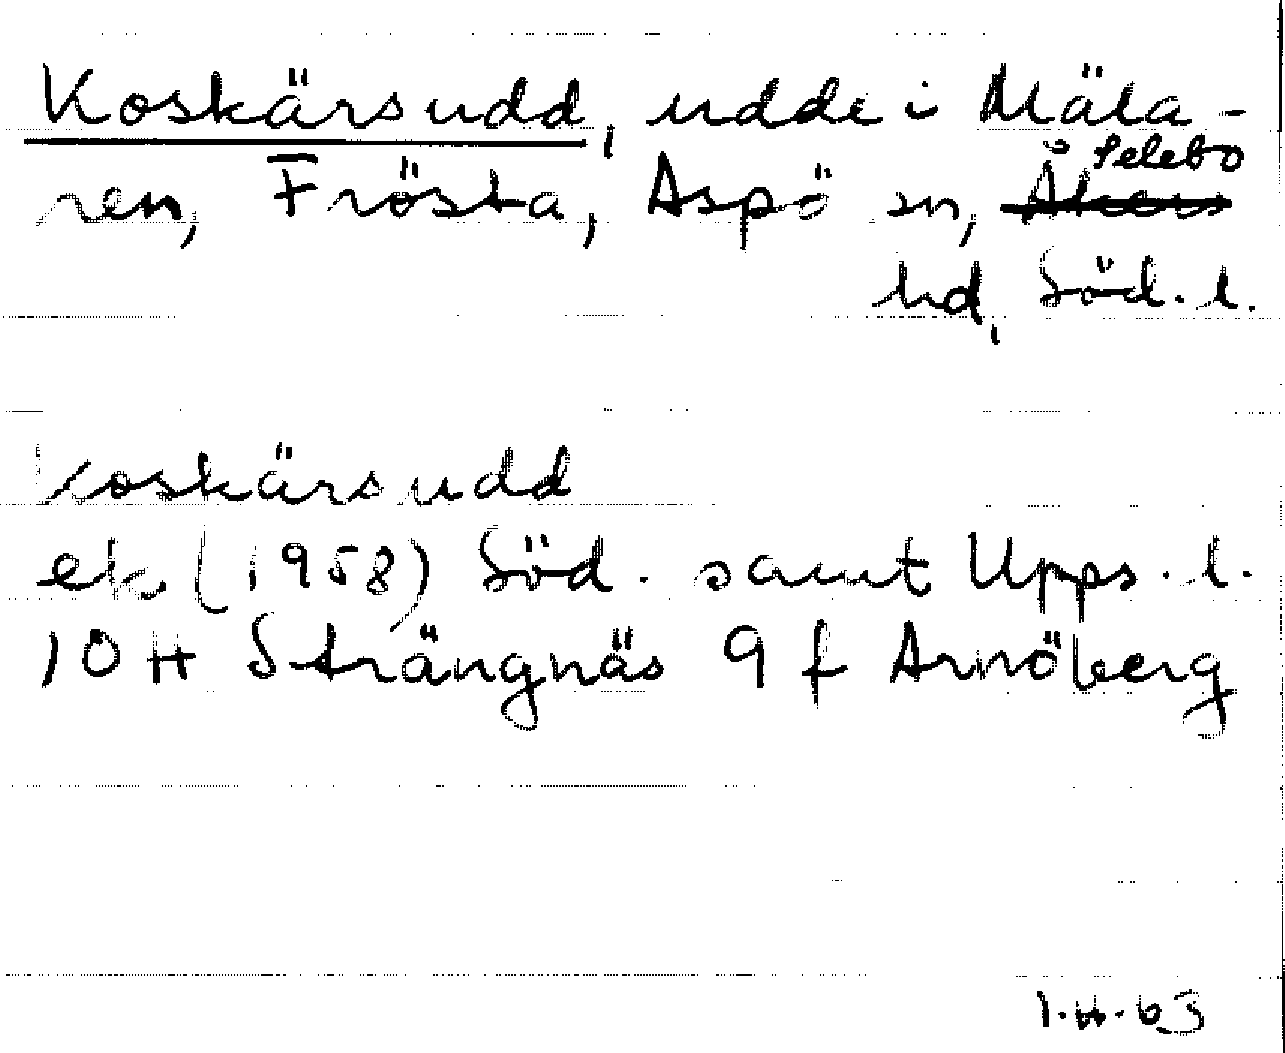 Koskärsudd, udde i Mäla-
ren, Frösta, Aspö sn, Åkers Selebo
hd, Söd. l.
Koskärsudd
ek (1958) Söd. samt Upps. l.
10 H Strängnäs 9 f Arnöberg